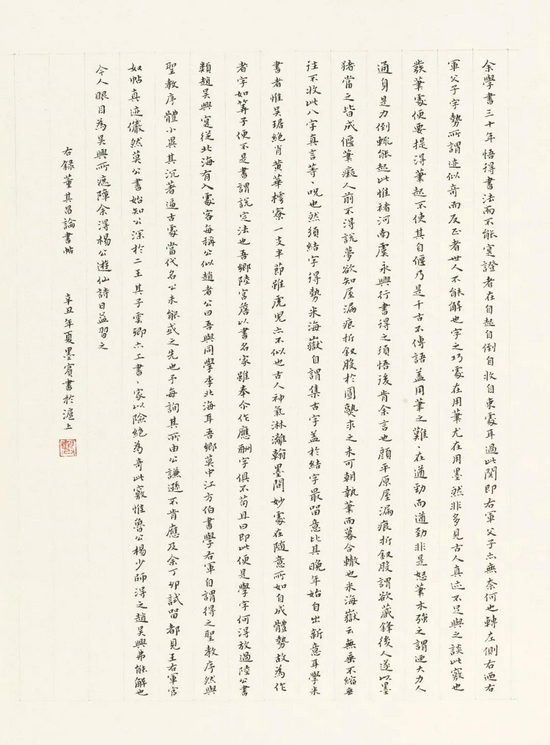 余學書三十年悟得書法而不能實證者在自起自倒自收自束處耳過此關即右軍父子亦無奈何也轉左側右乃右
軍父子字勢所謂迹似奇而反正者世人不能解也字之巧處在用筆尤在用墨然非多見古人真迹不足與之談此竅也
發筆處便要提得筆起不使其自偃乃是千古不傳語蓋用筆之難難在遒勁而遒勁非是怒筆木強之謂乃大力人
通身是力倒輒能起此惟褚河南虞永興行書得之須悟後肯余言也顏平原屋漏痕折釵股謂欲藏鋒後人遂以墨
豬當之皆成偃筆癡人前不得說夢欲知屋漏痕折釵股於圓熟求之未可朝執筆而暮合轍也米海嶽云無垂不縮無
往不收此八字真言等等呪也然須結字得勢米海嶽自謂集古字蓋於結字最留意比其晚年始自出新意耳學米
書者惟吳琚絕肖黃華樗寮一支半節雖虎兒亦不似也古人神氣淋漓翰墨間妙處在隨意所如自成體勢故為作
者字如算子便不是書謂說定法也吾鄉陸宮詹以書名家雖奉令作應酬字俱不苟且曰即此便是學字何得放過陸公書
類趙吳興實從北海有入處客每稱公似趙者公曰吾與同學李北海耳吾鄉莫中江方伯書學右軍自謂得之聖教序然與
聖教序體小異其沉著逼古處當代名公未能或之先也予每詢其所由公謙遜不肯應及余丁卯試留都見王右軍官
奴帖真迹儼然莫公書始知公深於二王其子雲卿亦工書書家以險絕為奇此竅惟魯公楊少師得之趙吳興弗能解也
今人眼目為吳興所遮障余得楊公遊仙詩日益習之
右錄董其昌論書帖
辛丑年夏墨賓書於滬上